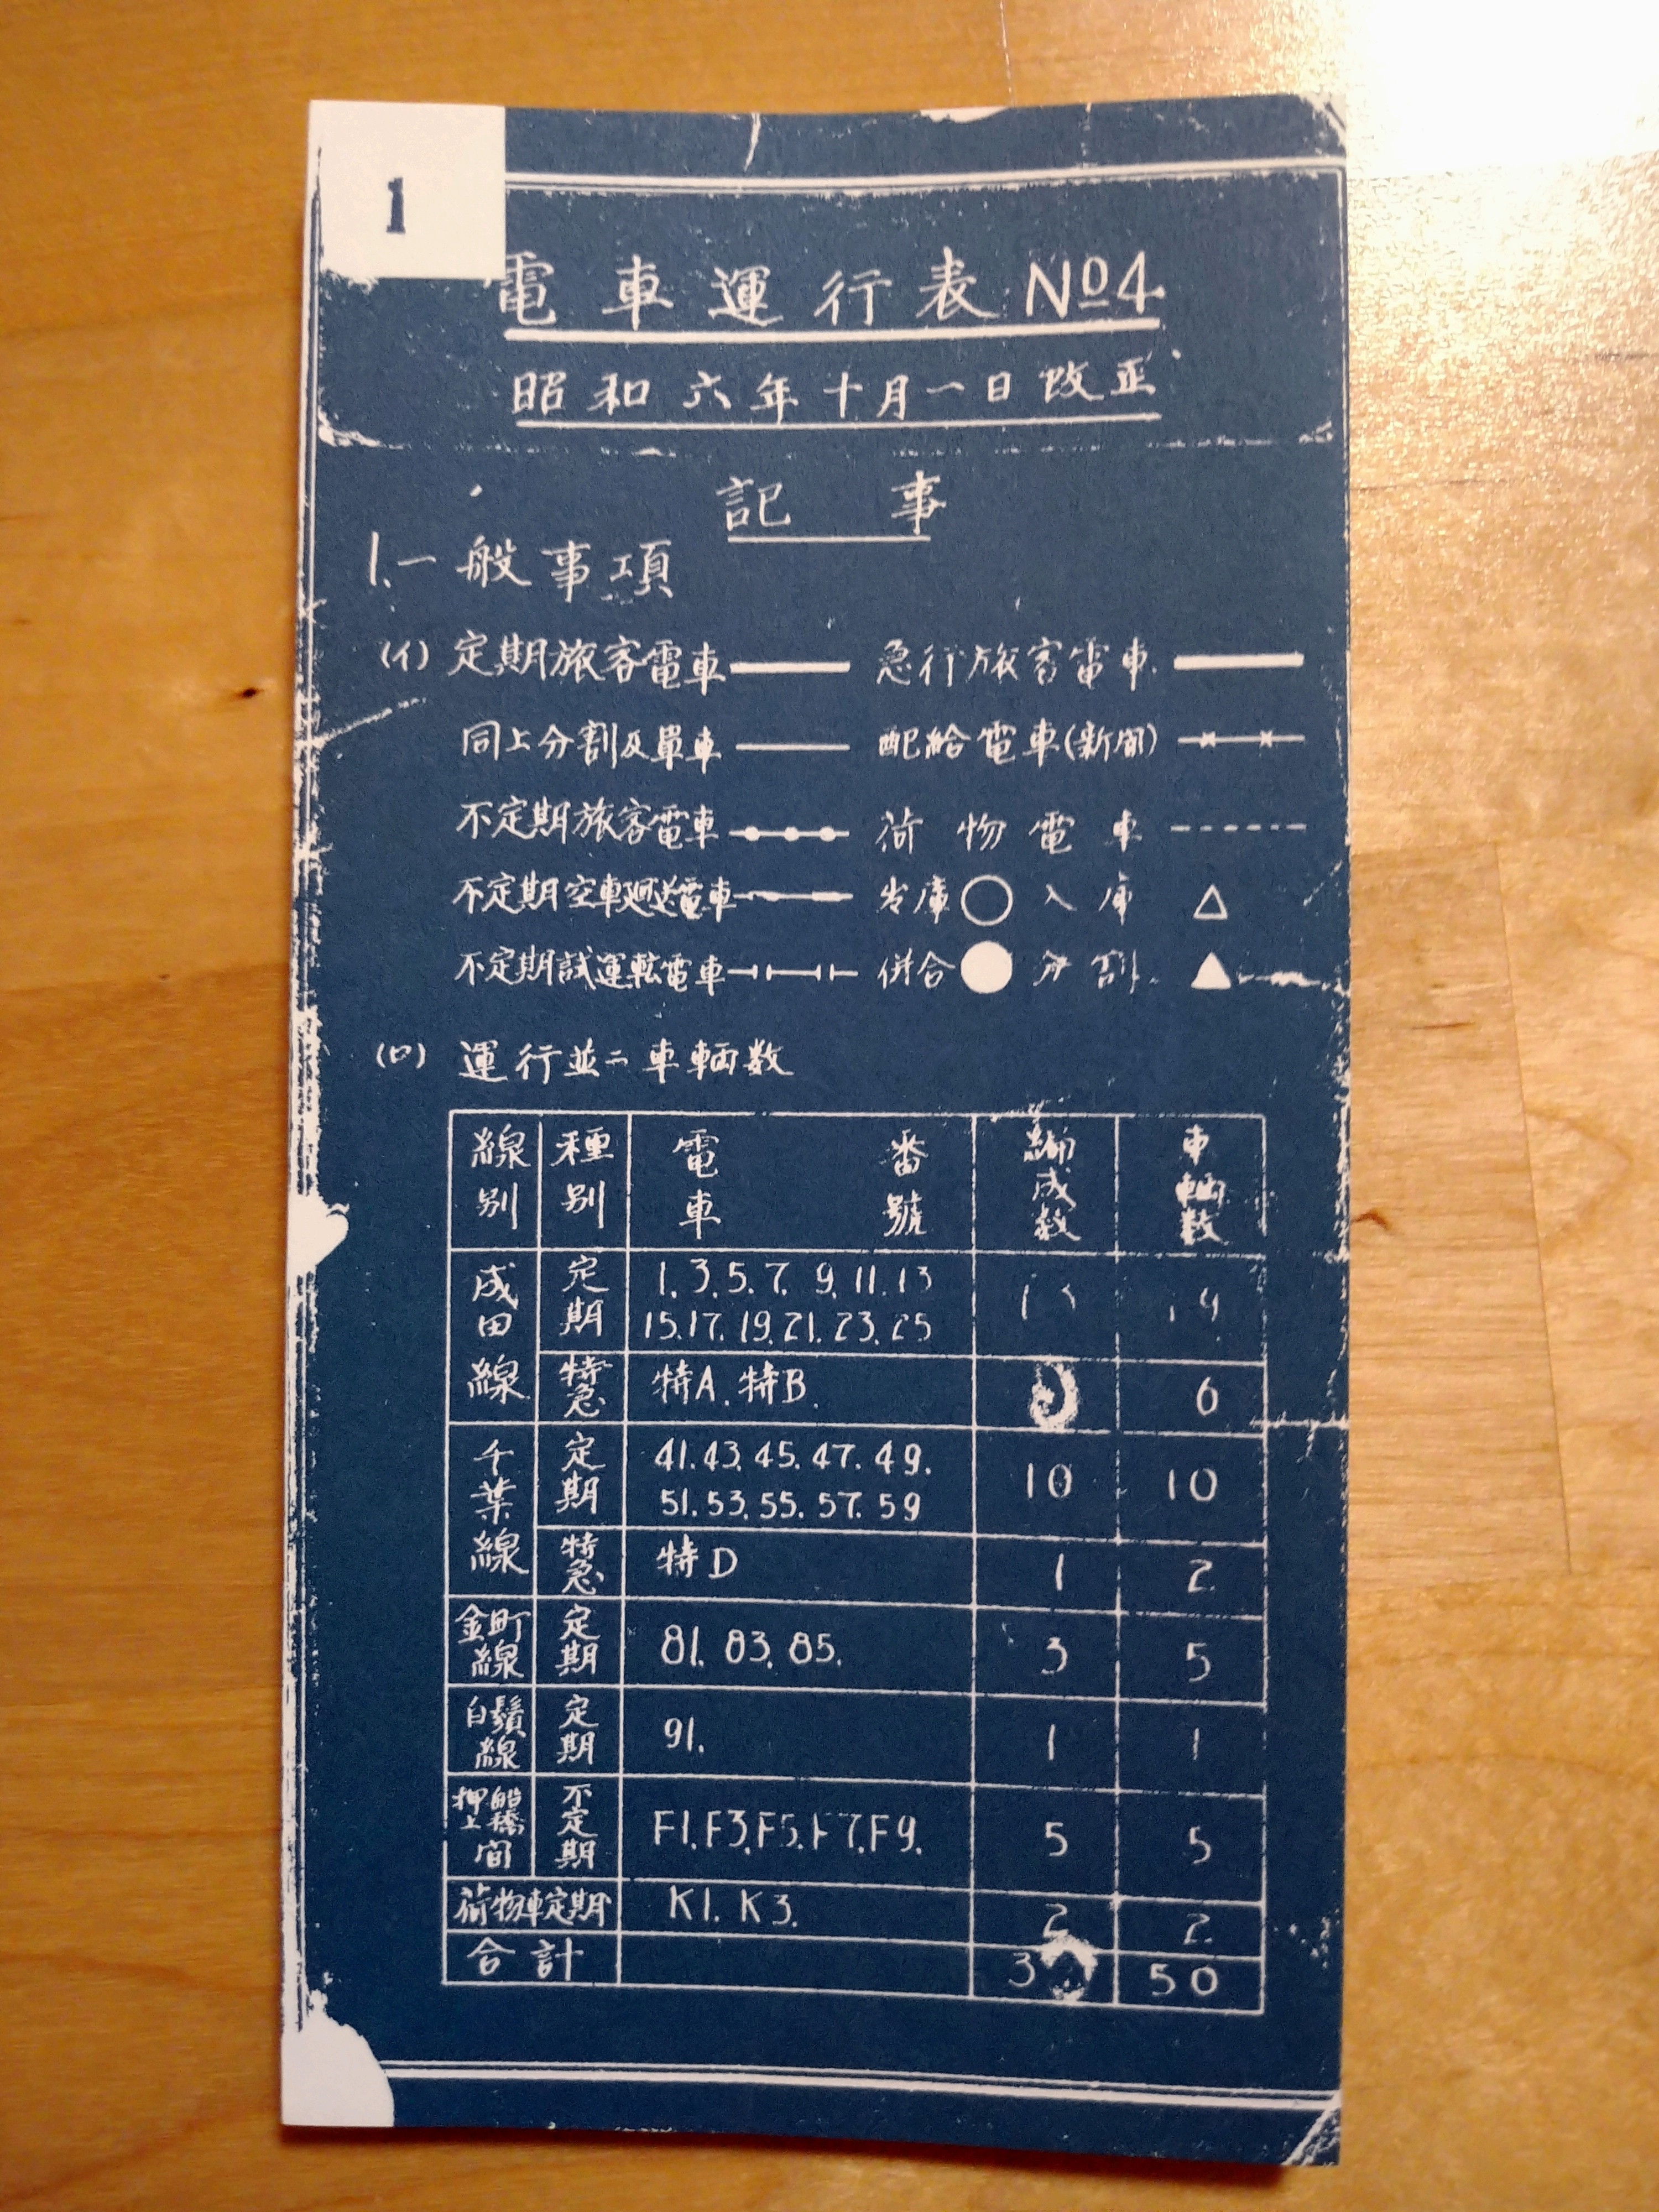 1
電車運行表 No4
昭和六年十月一日改正
記事
1.一般事項
(イ) 定期旅客電車 急行旅客電車
同上分割及単車 配給電車(新聞)
不定期旅客電車 荷物電車
不定期空車廻送電車 出庫 入庫
不定期試運転電車 併合 分割
(ロ) 運行並ニ車輌数
線別 種別 電車番號 編成数 車輌数
成田線 定期 1.3.5.7.9.11.13
15.17.19.21.23.25
特急 特A.特B. 6
千葉線 定期 41.43.45.47.49. 10 10
51.53.55.57.59
特急 特D 1 2
金町線 定期 81.83.85. 3 5
白鬚線 定期 91. 1 1
押上船橋間 不定期 F1.F3.F5.F7.F9. 5 5
荷物車定期 K1.K3. 2 2
合計 50